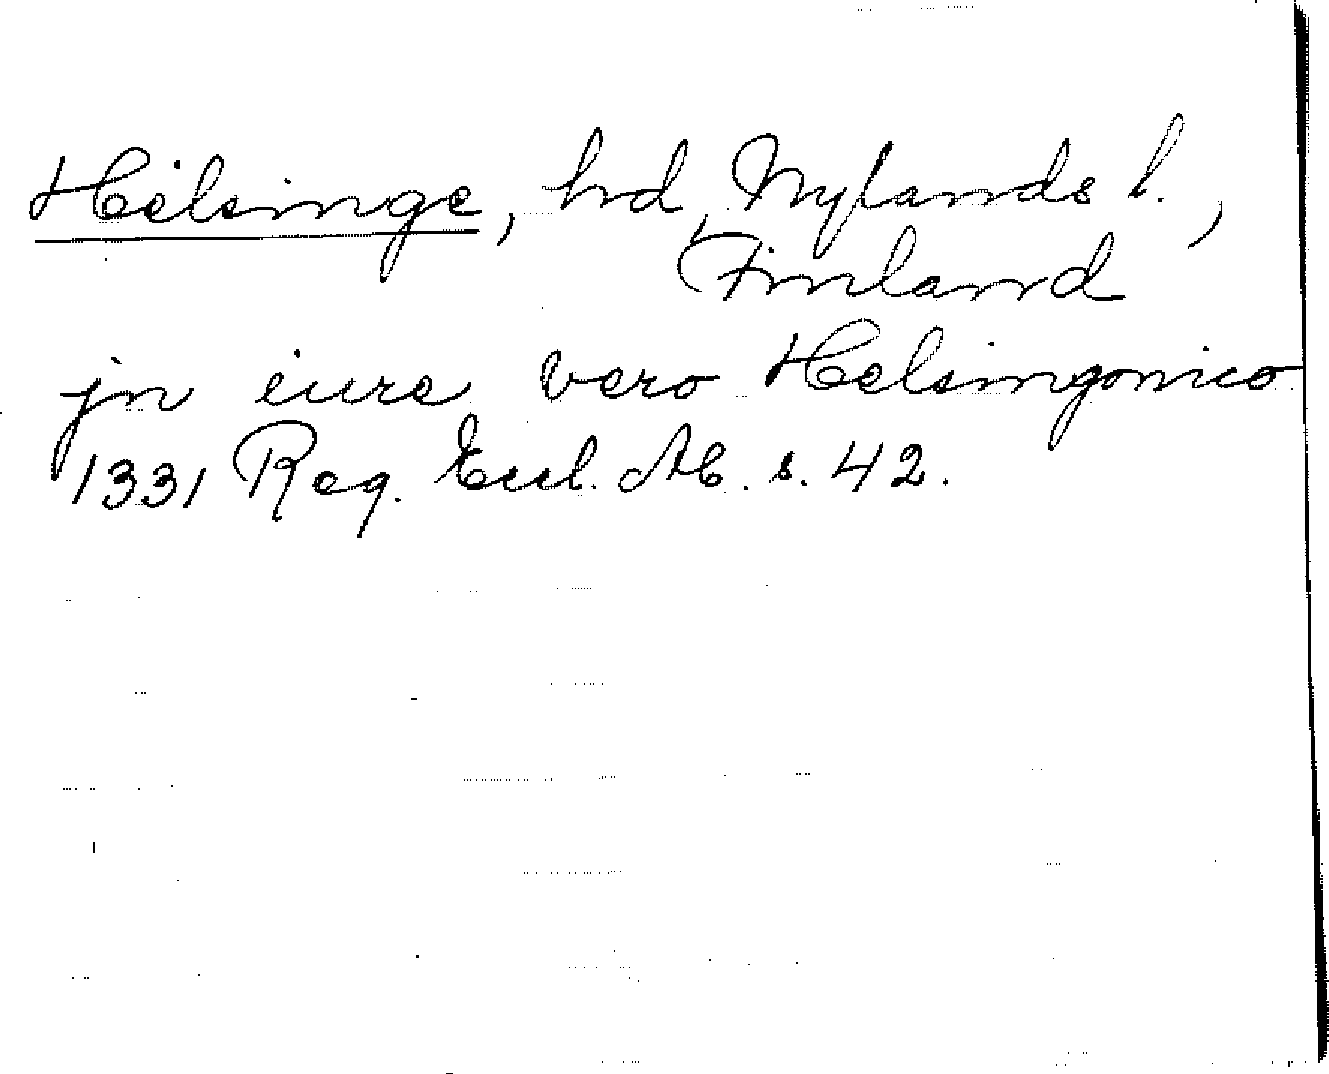 Helsinge, hd, Nylands l.,
Finland
jn iure vero Helsingonico
1331 Reg. Eccl. Ab. s. 42.